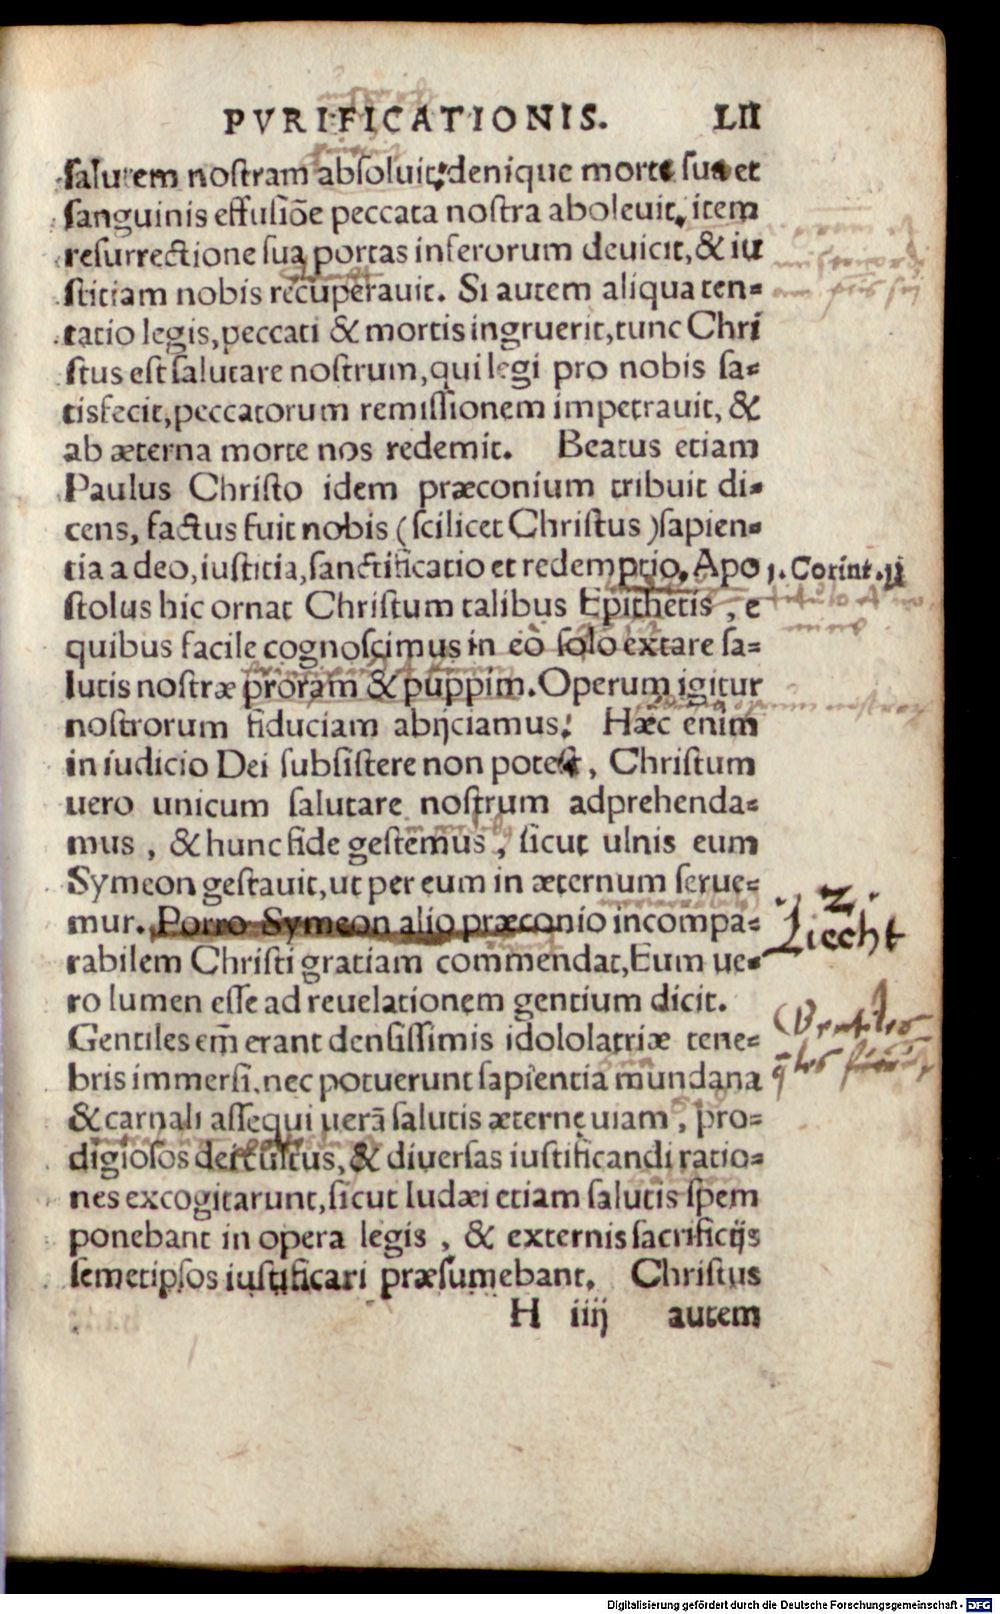 PVRIFICATIONIS. LII
salutem nostram absoluit: denique morte sua et
sanguinis effusiõe peccata nostra aboleuit, item
resurrectione sua portas inferorum deuicit, & iu
stitiam nobis recuperauit. Si autem aliqua ten=
tatio legis, peccati & mortis ingruerit, tunc Chri
stus est salutare nostrum, qui legi pro nobis sa=
tisfecit, peccatorum remissionem impetrauit, &
ab æterna morte nos redemit. Beatus etiam
Paulus Christo idem præconium tribuit di=
cens, factus fuit nobis (scilicet Christus) sapien=
tia a deo, iustitia, sanctificatio et redemptio. Apo
1. Corint. ij
stolus hic ornat Christum talibus Epithetis, e
quibus facile cognoscimus in eo solo extare sa=
lutis nostræ proram & puppim. Operum igitur
nostrorum fiduciam abijciamus: Hæc enim
in iudicio Dei subsistere non potest, Christum
uero unicum salutare nostrum adprehenda=
mus, & hunc fide gestemus, sicut ulnis eum
Symeon gestauit, ut per eum in æternum serue=
mur. Porro Symeon alio præconio incompa=
.2.
Liecht
rabilem Christi gratiam commendat, Eum ue=
ro lumen esse ad reuelationem gentium dicit.
Gentiles em̃ erant densissimis idololatriæ tene=
Gentiles
bris immersi, nec potuerunt sapientia mundana
& carnali assequi uerã salutis æternę uiam, pro=
digiosos dei cultus, & diuersas iustificandi ratio=
nes excogitarunt, sicut Iudæi etiam salutis spem
ponebant in opera legis, & externis sacrificijs
semetipsos iustificari præsumebant. Christus
H iiij autem
Digitalisierung gefördert durch die Deutsche Forschungsgemeinschaft - DFG